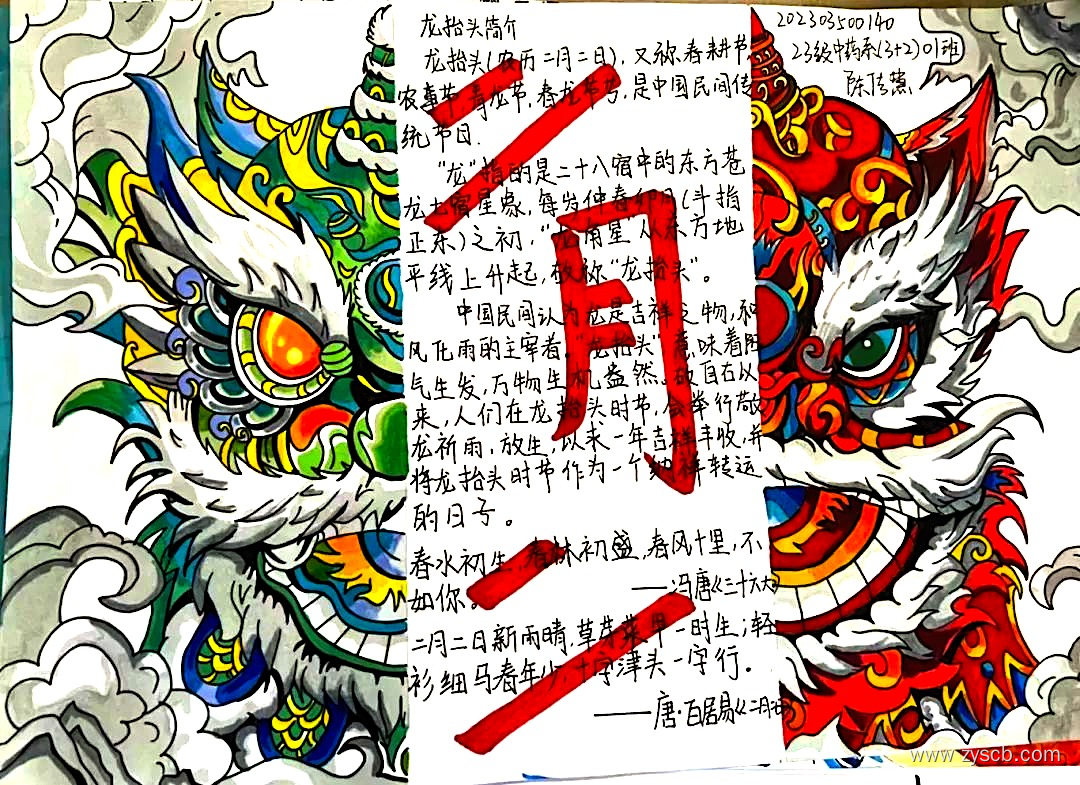 龙抬头简介
龙抬头(农历二月二日),又称春耕节,
农事节,青龙节,春龙节等,是中国民间传
统节日.
"龙"指的是二十八宿中的东方苍
龙七宿星象,每岁仲春卯月(斗指
正东)之初,"龙角星"从东方地
平线上升起,故称"龙抬头"。
中国民间认为龙是吉祥之物,和
风化雨的主宰者。"龙抬头"意味着阳
气生发,万物生机盎然。故自古以
来,人们在龙抬头时节,会举行敬
龙祈雨,放生,以求一年吉祥丰收,并
将龙抬头时节作为一个纳祥转运
的日子。
春水初生,春林初盛,春风十里,不
如你。
——冯唐《三十六大
二月二日新雨晴,草芽菜甲一时生;轻
衫细马春年少,十字津头一字行。
——唐·白居易《二月二
二月二
202303500140
23级中药系(3+2)01班
www.zyscb.com